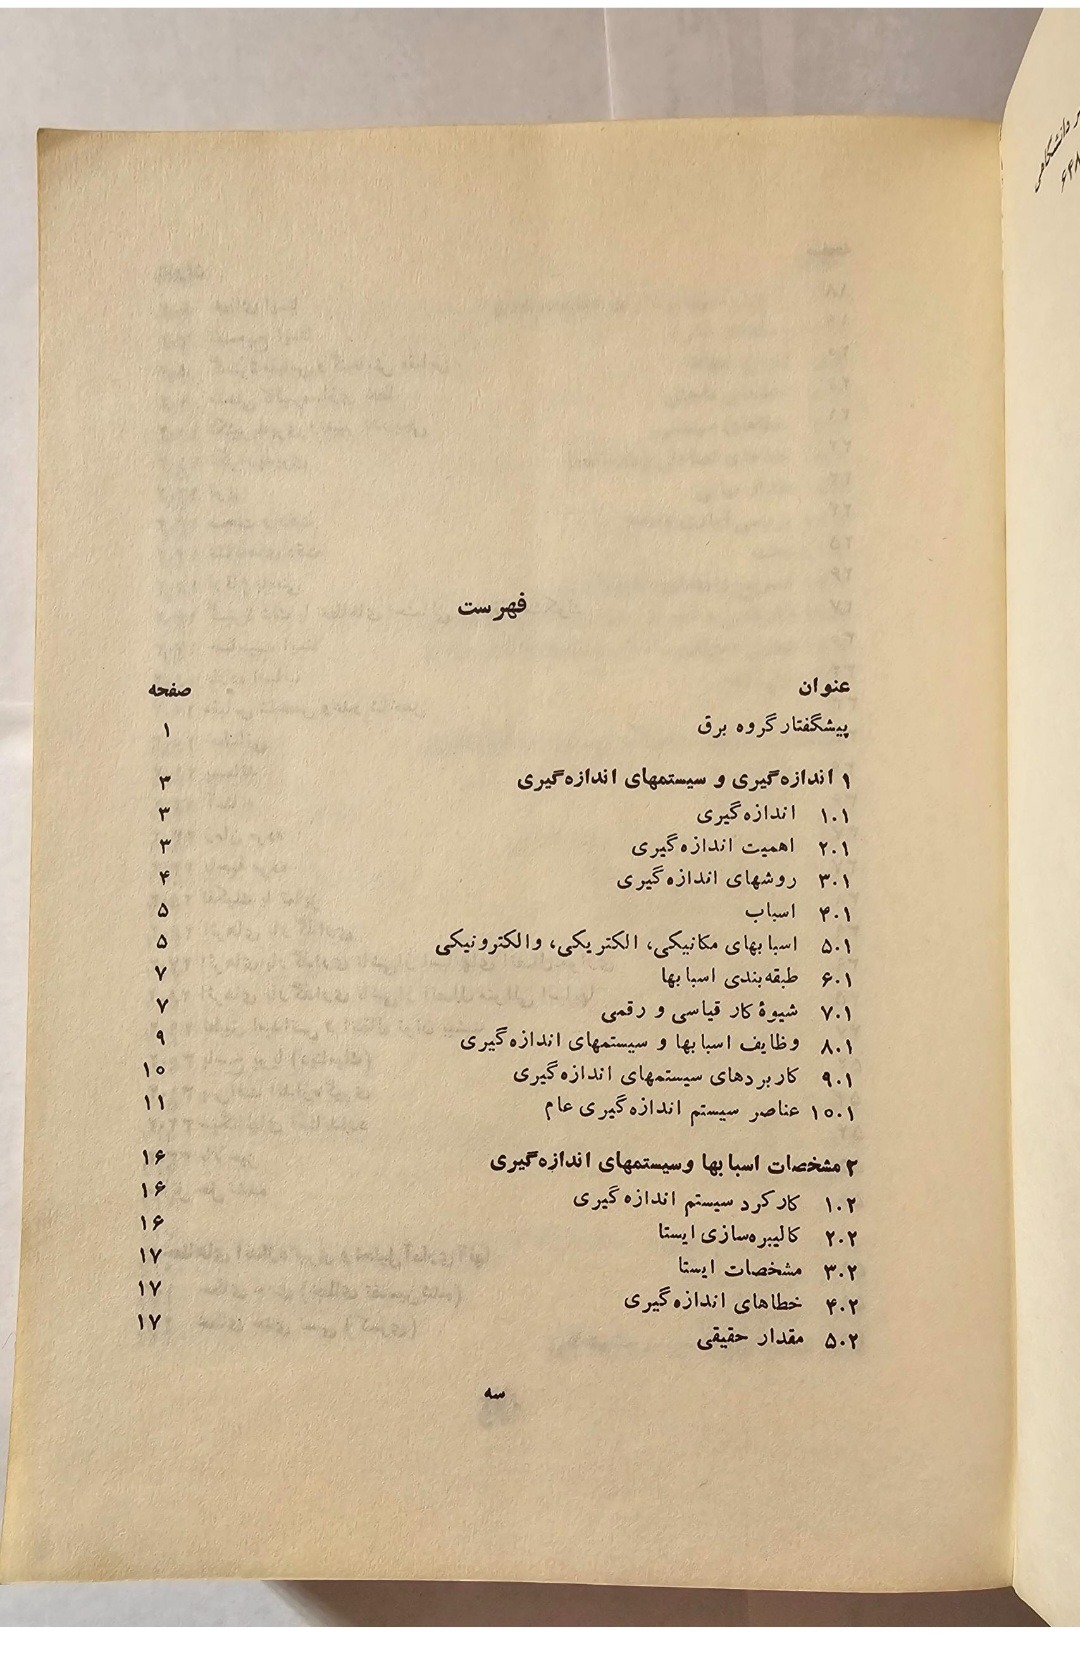 فهرست
عنوان صفحه
پیشگفتار گروه برق ۱
۱ اندازه‌گیری و سیستمهای اندازه‌گیری ۳
۱.۱ اندازه‌گیری ۳
۲.۱ اهمیت اندازه‌گیری ۳
۳.۱ روشهای اندازه‌گیری ۴
۴.۱ اسباب ۵
۵.۱ اسبابهای مکانیکی، الکتریکی، والکترونیکی ۵
۶.۱ طبقه‌بندی اسبابها ۷
۷.۱ شیوهٔ کار قیاسی و رقمی ۷
۸.۱ وظایف اسبابها و سیستمهای اندازه‌گیری ۹
۹.۱ کاربردهای سیستمهای اندازه‌گیری ۱۰
۱۰.۱ عناصر سیستم اندازه‌گیری عام ۱۱
۲ مشخصات اسبابها وسیستمهای اندازه‌گیری ۱۶
۱.۲ کارکرد سیستم اندازه‌گیری ۱۶
۲.۲ کالیبره‌سازی ایستا ۱۶
۳.۲ مشخصات ایستا ۱۷
۴.۲ خطاهای اندازه‌گیری ۱۷
۵.۲ مقدار حقیقی ۱۷
سه
دانشگاهی